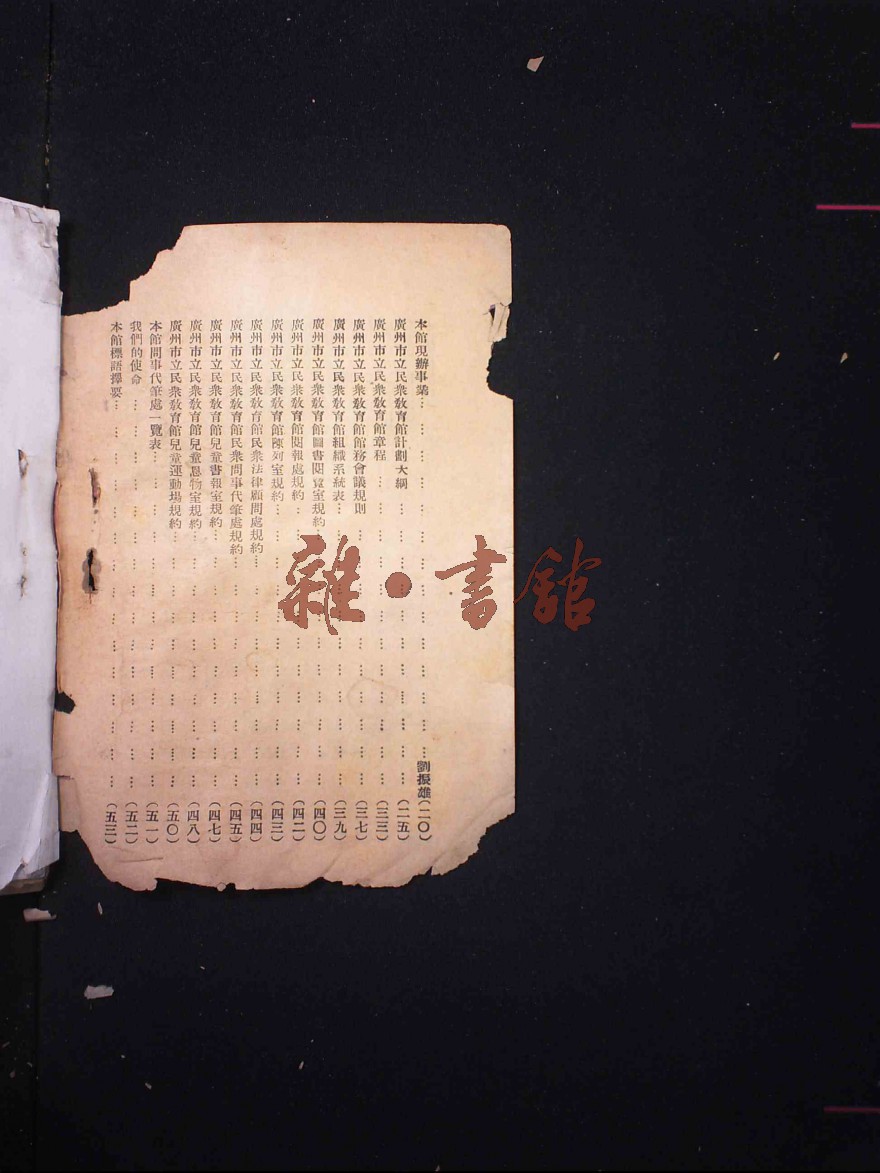 本館現辦事業… … … … … … … … … … … … … …劉振雄(二〇)
廣州市立民衆敎育館計劃大綱 … … … … … … … … … … …(二五)
廣州市立民衆敎育館章程 … … … … … … … … … … … …(三三)
廣州市立民衆敎育館館務會議規則 … … … … … … … … … …(三七)
廣州市立民衆敎育館組織系統表… … … … … … … … … … …(三九)
廣州市立民衆敎育館圖書閱覽室規約… … … … … … … … … …(四〇)
廣州市立民衆敎育館閱報處規約… … … … … … … … … … …(四二)
廣州市立民衆敎育館陳列室規約… … … … … … … … … … …(四三)
廣州市立民衆敎育館民衆法律顧問處規約… … … … … … … … …(四四)
廣州市立民衆敎育館民衆問事代筆處規約… … … … … … … … …(四五)
廣州市立民衆敎育館兒童書報室規約… … … … … … … … … …(四七)
廣州市立民衆敎育館兒童恩物室規約… … … … … … … … … …(四八)
廣州市立民衆敎育館兒童運動場規約… … … … … … … … … …(五〇)
本館問事代筆處一覽表… … … … … … … … … … … … …(五一)
我們的使命 … … … … … … … … … … … … … … …(五二)
本館標語擇要… … … … … … … … … … … … … … …(五三)
雜·書館